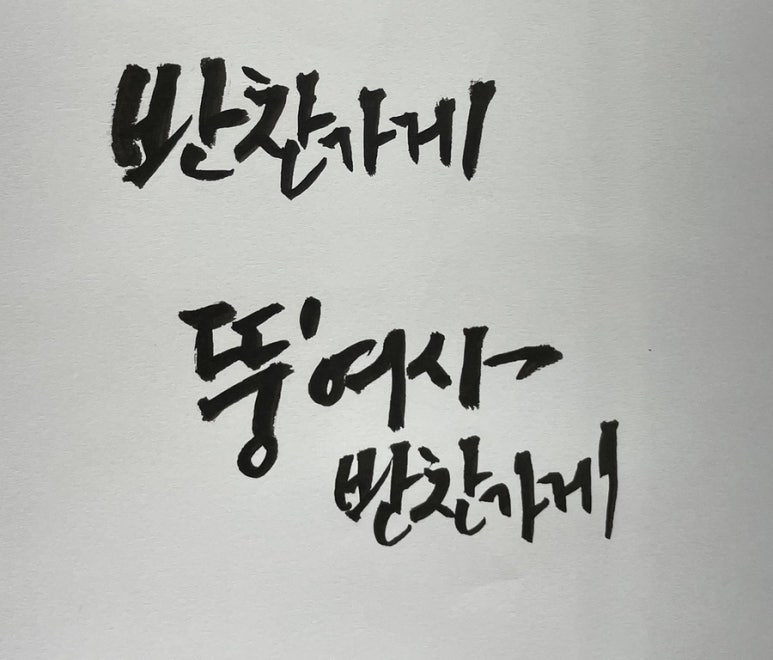 반찬가게
뚱'여사
반찬가게